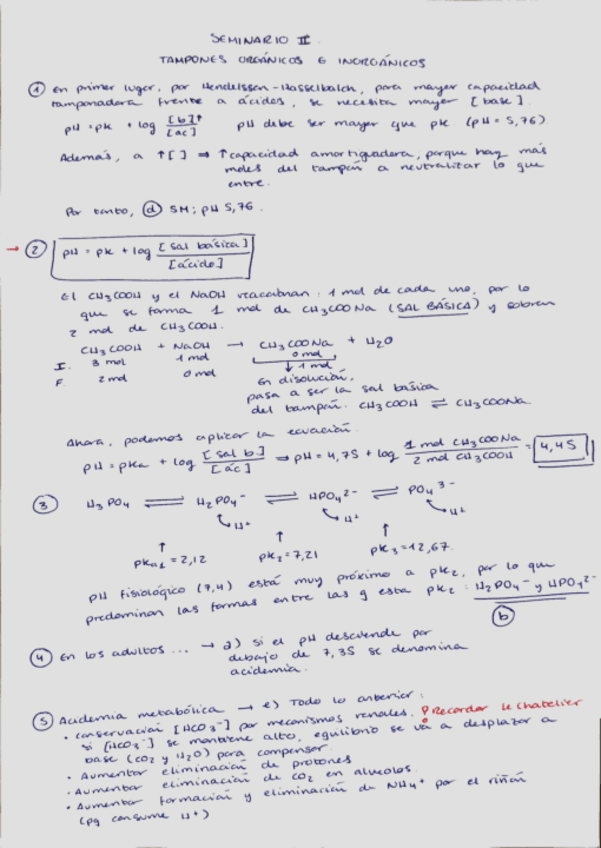 SEMINARIO II.
TAMPONES ORGÁNICOS E INORGÁNICOS
① En primer lugar, por Hendelssen-Hasselbalch, para mayor capacidad
tamponadora frente a ácidos, se necesita mayor [base].
pH = pK + log [b]↑ / [ac] pH debe ser mayor que pK. (pH = 5,76)
Además, a ↑[ ] ⇒ ↑ capacidad amortiguadora, porque hay más
moles del tampón a neutralizar lo que
entre.
Por tanto, ⓓ 5M; pH 5,76.
→ ② pH = pK + log [sal básica] / [ácido]
El CH₃COOH y el NaOH reaccionan: 1 mol de cada uno, por lo
que se forma 1 mol de CH₃COONa (SAL BÁSICA) y sobran
2 mol de CH₃COOH.
CH₃COOH + NaOH → CH₃COONa + H₂O
I. 3 mol 1 mol 0 mol
F. 2 mol 0 mol ↓ 1 mol
En disolución,
pasa a ser la sal básica
del tampón. CH₃COOH ⇌ CH₃COONa
Ahora, podemos aplicar la ecuación.
pH = pKa + log [sal b.] / [ác] ⇒ pH = 4,75 + log 1 mol CH₃COONa / 2 mol CH₃COOH = 4,45
③ H₃PO₄ ⇌ H₂PO₄⁻ ⇌ HPO₄²⁻ ⇌ PO₄³⁻
↳ H⁺ ↳ H⁺ ↳ H⁺
↑ ↑ ↑
pKa₁ = 2,12 pK₂ = 7,21 pK₃ = 12,67.
pH fisiológico (7,4) está muy próximo a pK₂, por lo que
predominan las formas entre las q esta pK₂: H₂PO₄⁻ y HPO₄²⁻
ⓑ
④ En los adultos ... → a) Si el pH desciende por
debajo de 7,35 se denomina
acidemia.
⑤ Acidemia metabólica → e) Todo lo anterior:
• Conservación [HCO₃⁻] por mecanismos renales. Recordar le Chatelier
si [HCO₃⁻] se mantiene alto, equilibrio se va a desplazar a
base (CO₂ y H₂O) para compensar.
• Aumentar eliminación de protones
• Aumentar eliminación de CO₂ en alveolos.
• Aumentar formación y eliminación de NH₄⁺ por el riñón
(pq consume H⁺)